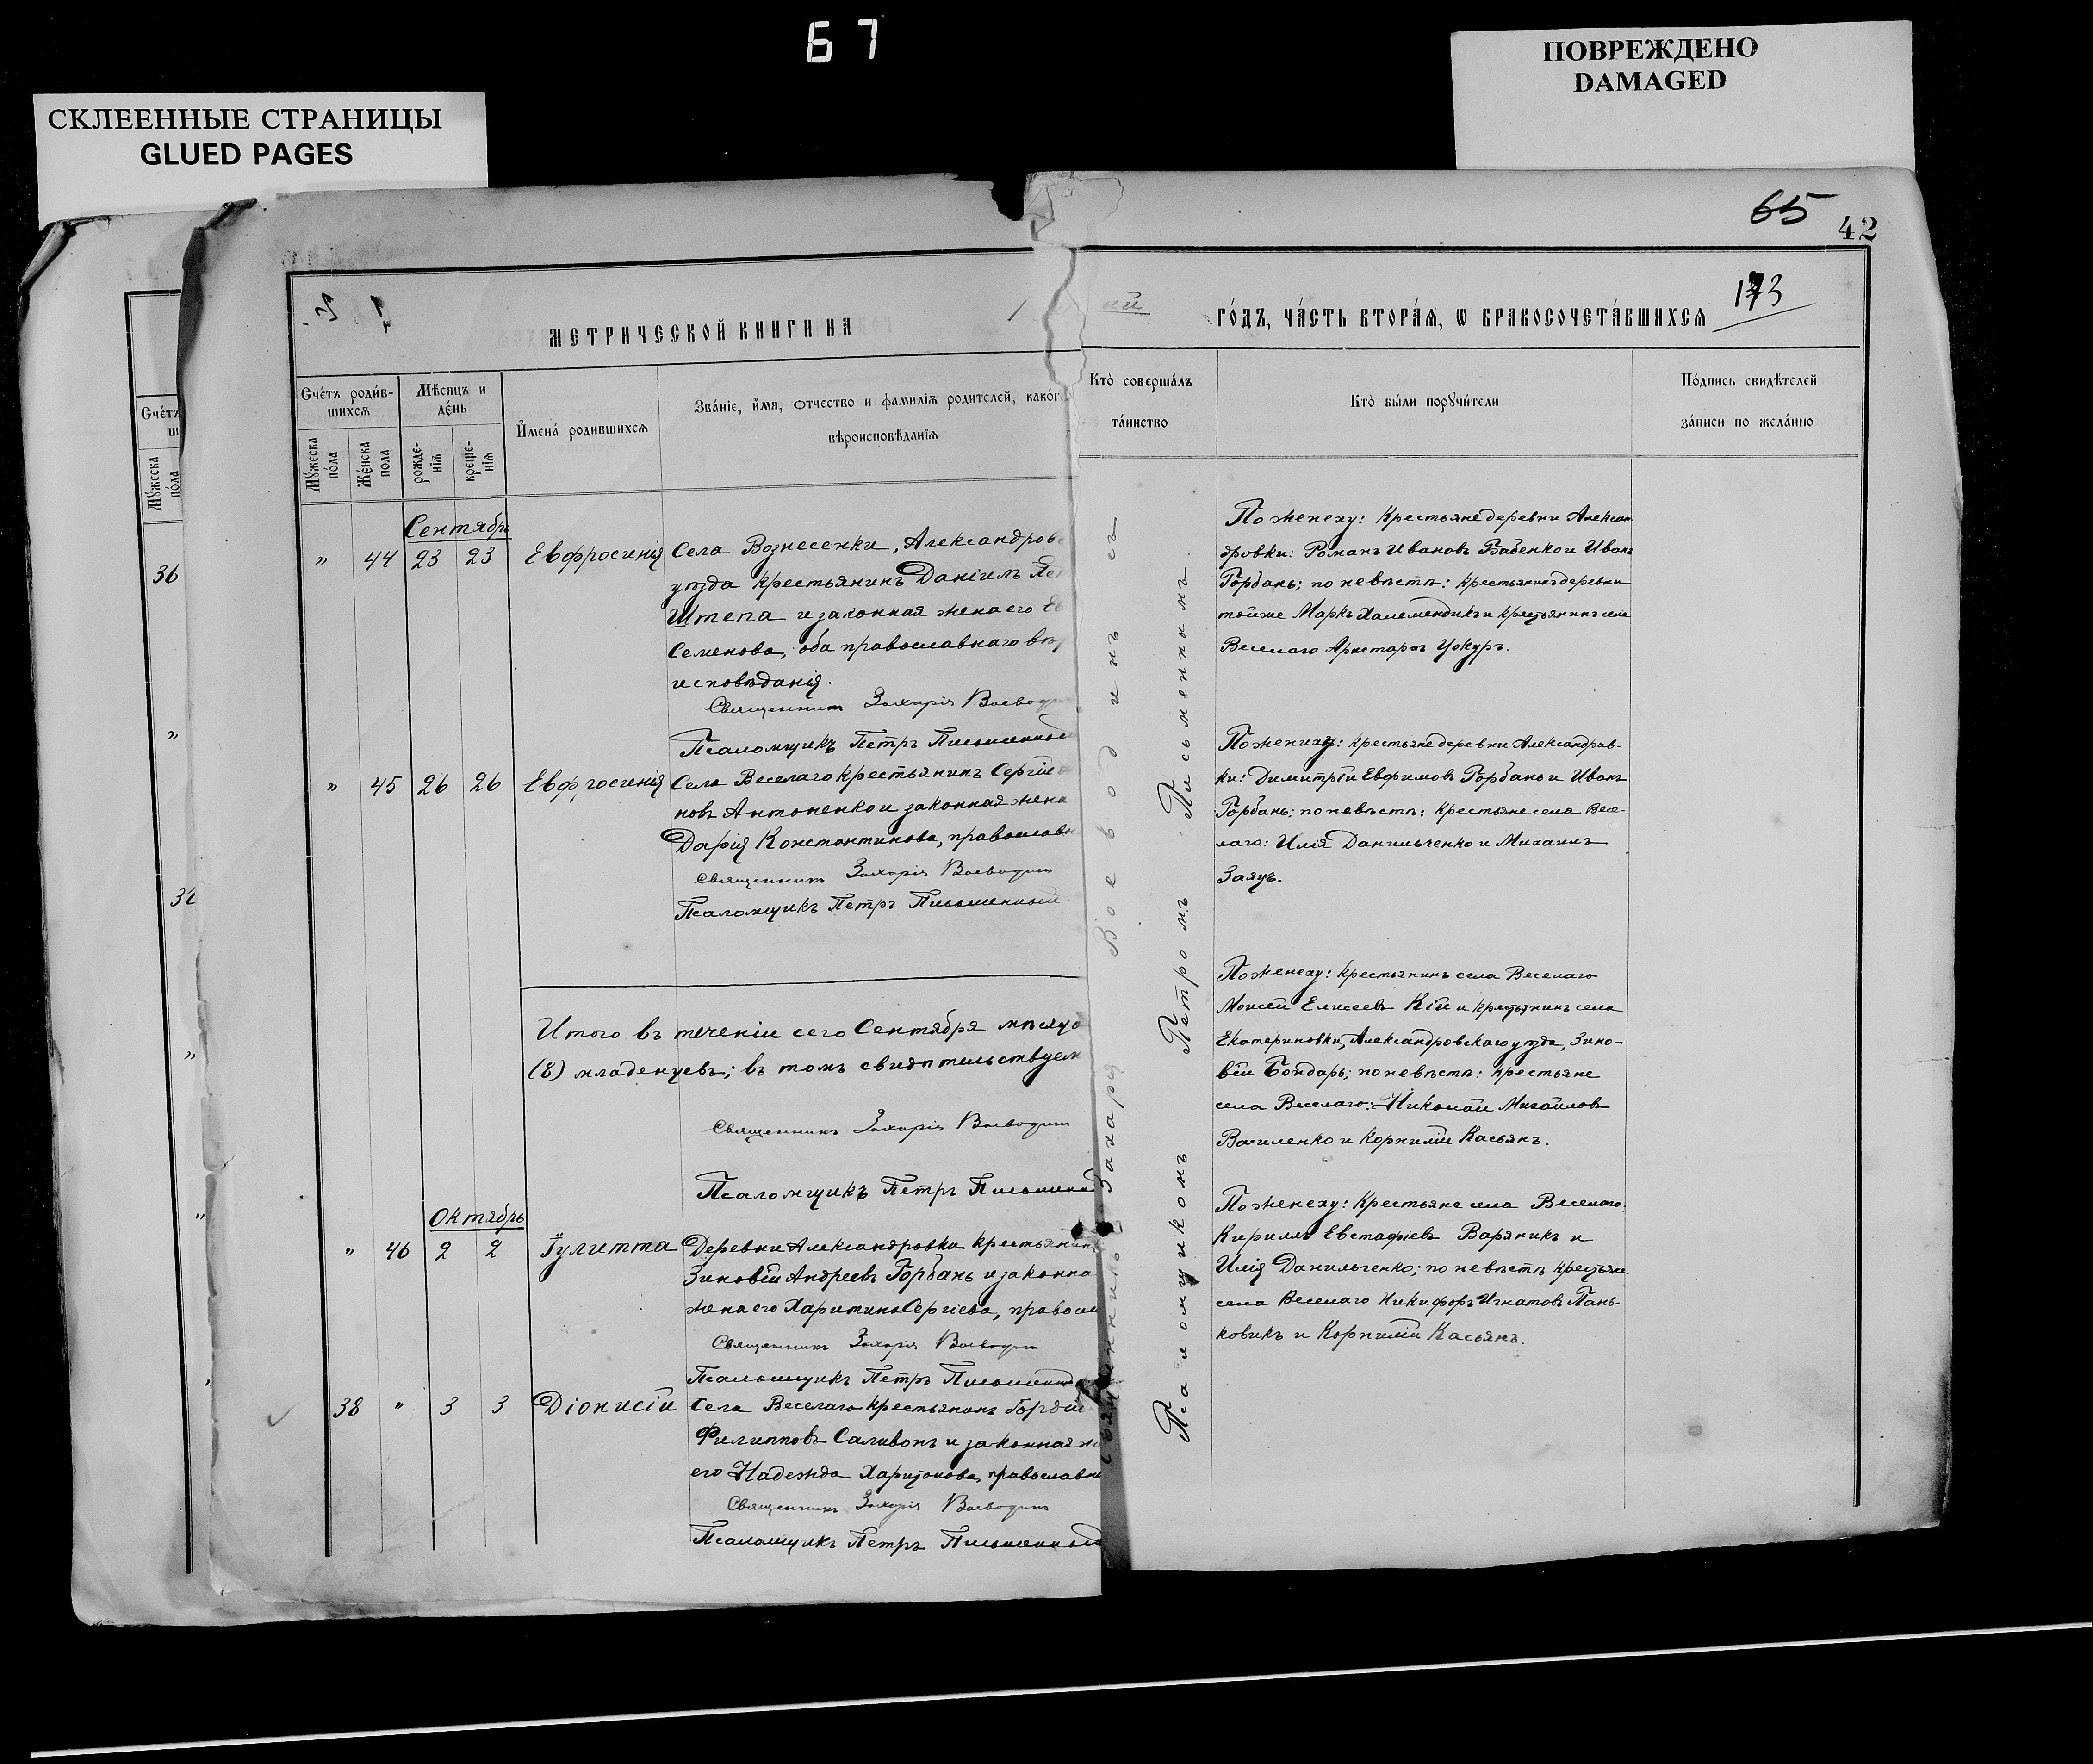 67
ПОВРЕЖДЕНО
DAMAGED
СКЛЕЕННЫЕ СТРАНИЦЫ
GLUED PAGES
65
42
МЕТРИЧЕСКОЙ КНИГИ НА
1
ый
ГОДЪ, ЧАСТЬ ВТОРАЯ, Ѡ БРАКОСОЧЕТАВШИХСЯ
173
Счетъ
ш
Мужеска
пола
36
"
"
"
Счетъ родив-
шихся
Мужеска
пола
Женска
пола
Мѣсяцъ и
день
рожде-
нія
креще-
нія
Имена родившихся
Званіе, имя, отчество и фамилія родителей, каког
вѣроисповѣданія
Сентябрь
" 44 23 23 Евфросинія
Села Вознесенки, Александров
уѣзда крестьянинъ Даніилъ
Штепа и законная жена его Е
Семенова, оба православнаго вѣр
исповѣданія.
Священникъ Захарія Воеводи
Псаломщикъ Петръ Письменный
" 45 26 26 Евфросинія
Села Веселаго крестьянинъ Сергій
новъ Антоненко и законная жена
Дарія Константинова, православн
Священникъ Захарія Воеводинъ
Псаломщикъ Петръ Письменный
Итого въ теченіи сего Сентября мѣсяца
(8) младенцевъ; въ томъ свидѣтельствуем
Священникъ Захарія Воеводинъ
Псаломщикъ Петръ Письменный
Октябрь
" 46 2 2 Іулитта
Деревни Александровки крестьянинъ
Зиновій Андреевъ Горбань и законна
жена его Харитина Сергіева, правосл
Священникъ Захарія Воеводин
Псаломщикъ Петръ Письменный
38 " 3 3 Діонисій
Села Веселаго крестьянинъ Гордій
Филипповъ Саливонъ и законная ж
его Надежда Харитонова, православн
Священникъ Захарія Воеводинъ
Псаломщикъ Петръ Письменный
Кто совершалъ
таинство
Кто были поручители
Подпись свидѣтелей
записи по желанію
Захарія Воеводинъ съ
Псаломщикомъ Петромъ Письменнымъ.
По жениху: крестьяне деревни Алексан-
дровки: Романъ Ивановъ Бабенко и Иванъ
Горбань; по невѣстѣ: крестьянинъ деревни
тойже Маркъ и крестьянинъ села
Веселаго Цокуръ.
По жениху: крестьяне деревни Александров-
ки: Димитрій Евфимовъ Горбань и Иванъ
Горбань; по невѣстѣ: крестьяне села Весе-
лаго: Илія Данильченко и Михаилъ
Заяцъ.
По жениху: крестьянинъ села Веселаго
Моисей Елисеевъ Кій и крестьянинъ села
Екатериновки, Александровскаго уѣзда, Зино-
вій Бондарь; по невѣстѣ: крестьяне
села Веселаго: Николай Михайловъ
Василенко и Корнилій Касьянъ.
По жениху: Крестьяне села Веселаго
Кириллъ Евстафіевъ Варяникъ и
Илія Данильченко; по невѣстѣ крестьяне
села Веселаго Никифоръ Игнатовъ Пань-
ковикъ и Корнилій Касьянъ.